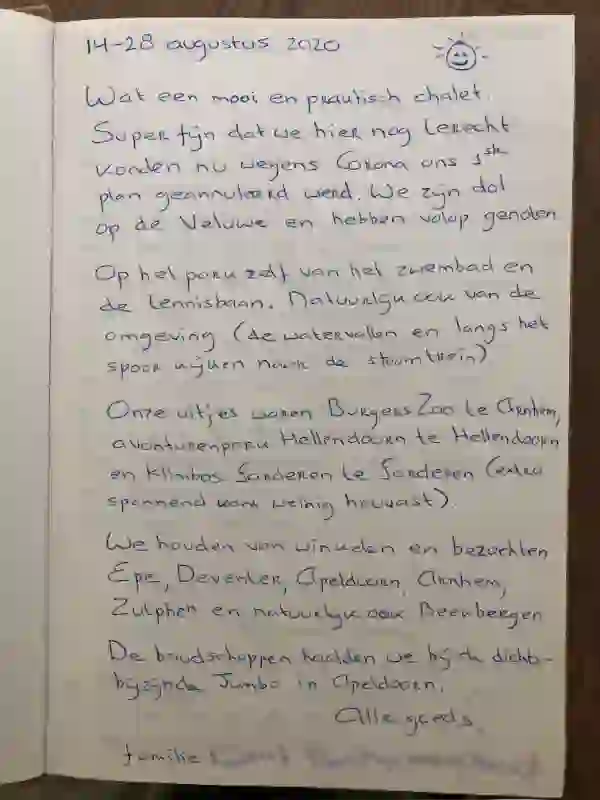 14-28 augustus 2020
Wat een mooi en praktisch chalet.
Super fijn dat we hier nog terecht
konden nu wegens Corona ons 1ste
plan geannuleerd werd. We zijn dol
op de Veluwe en hebben volop genoten
Op het park zelf van het zwembad en
de tennisbaan. Natuurlijk ook van de
omgeving (de watervallen en langs het
spoor kijken naar de stoomtrein)
Onze uitjes waren Burgers Zoo te Arnhem,
avonturenpark Hellendoorn te Hellendoorn
en Klimbos Garderen te Garderen (extra
spannend want weinig houvast).
We houden van winkelen en bezochten
Epe, Deventer, Apeldoorn, Arnhem,
Zutphen en natuurlijk ook Beekbergen
De boodschappen haalden we bij de dichts-
bijzijnde Jumbo in Apeldoorn.
Alle goeds,
familie